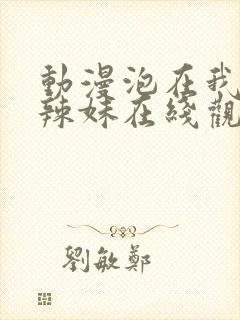 動漫泡在我
辣妹在綫觀
劉敏鄭